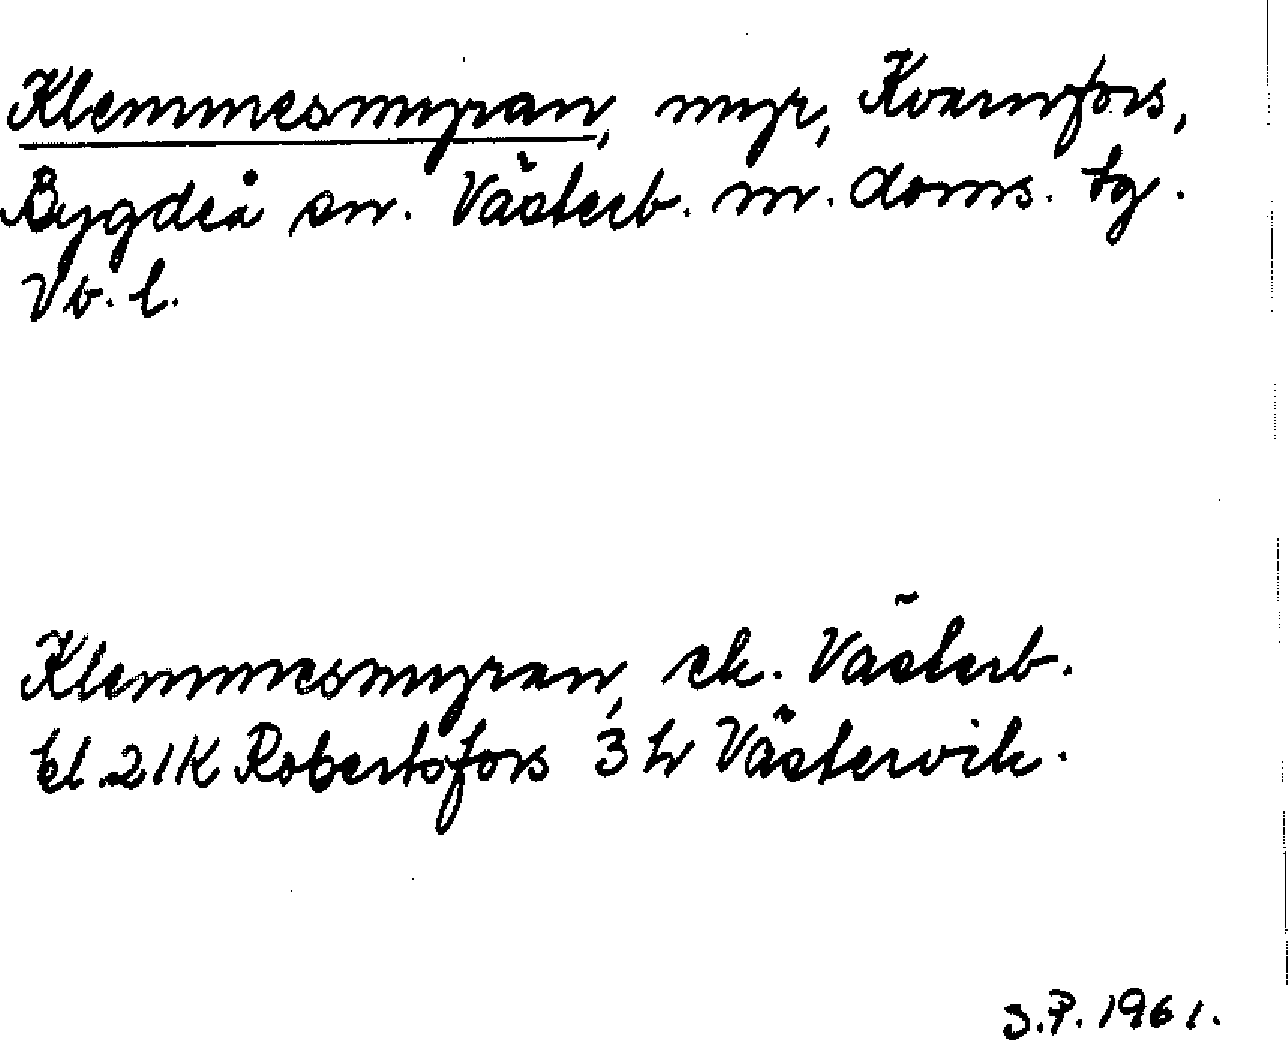 Klemmesmyran, myr, Kvarnfors,
Bygdeå sn. Västerb. n. doms. tg.
Vb. l.
Klemmesmyran, ek. Västerb.
bl. 21K Robertsfors 3 h Västervik.
S.P. 1961.